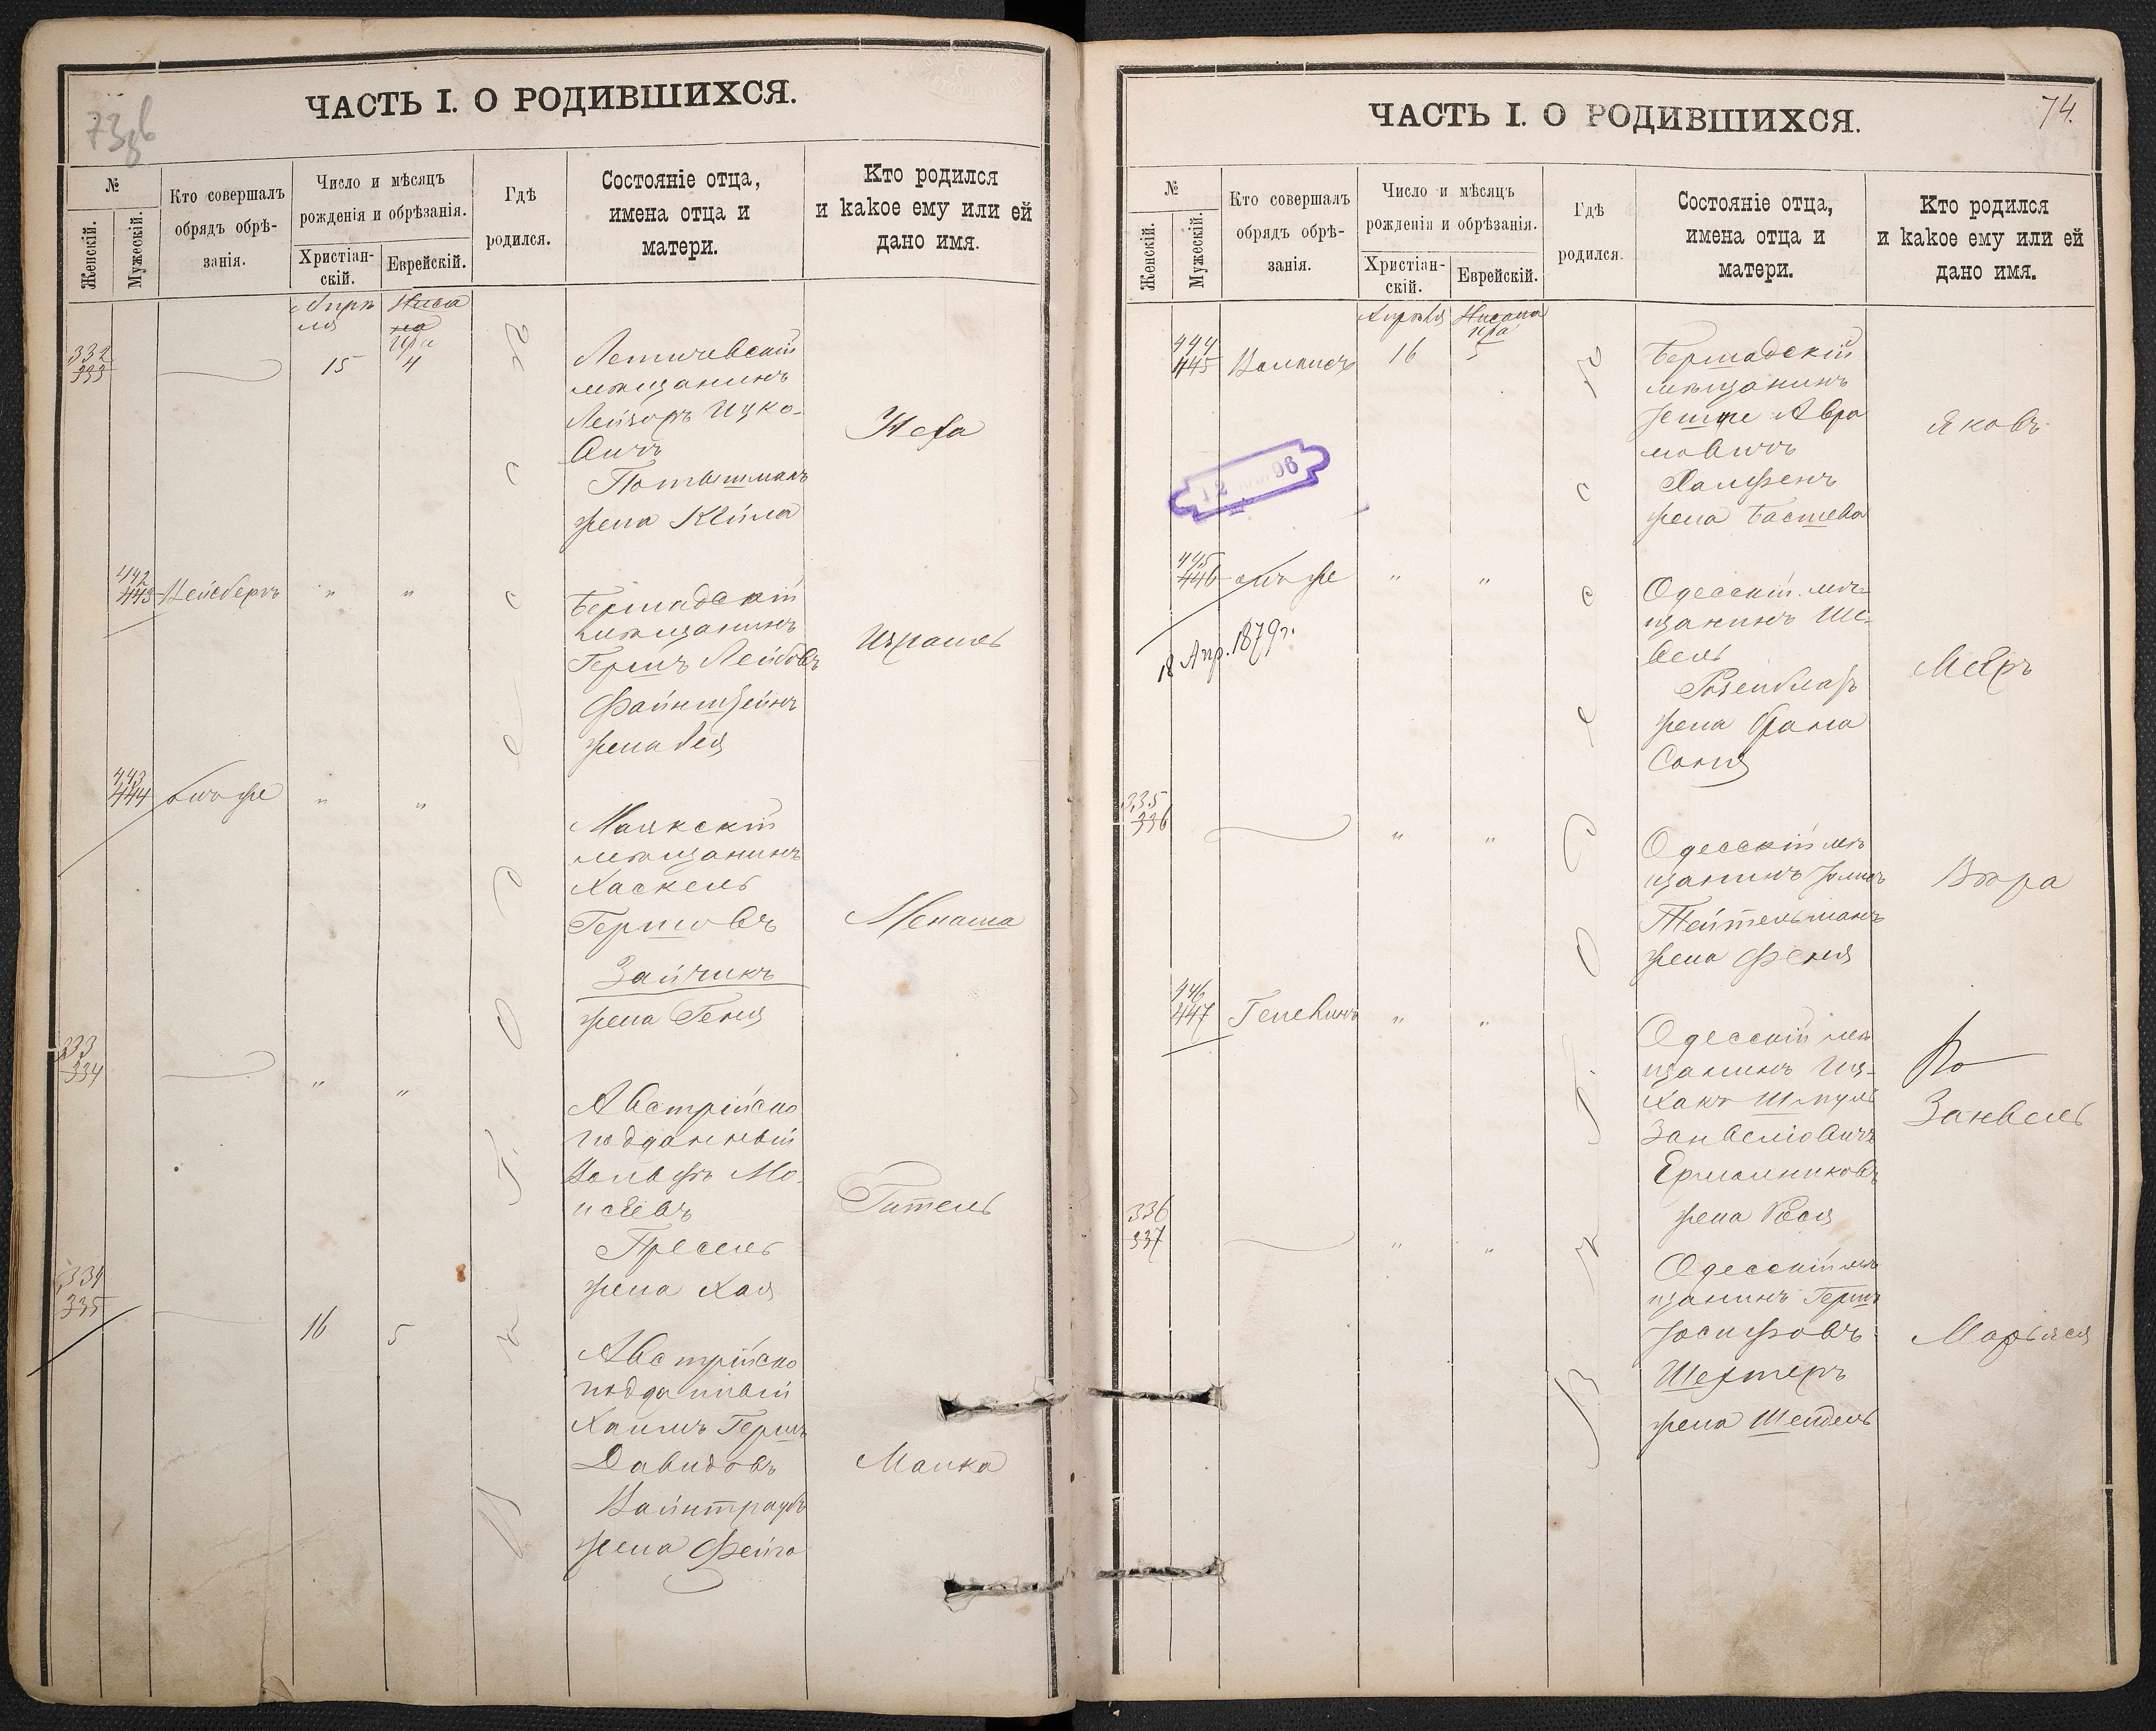 73об
ЧАСТЬ I. О РОДИВШИХСЯ.
№
Женскій.
Мужескій.
Кто совершалъ
обрядъ обрѣ-
занія.
Число и мѣсяцъ
рожденія и обрѣзанія.
Христіан-
скій.
Еврейскій.
Гдѣ
родился.
Состояніе отца,
имена отца и
матери.
Кто родился
и какое ему или ей
дано имя.
Апрѣ
ля
332
333
15
4
Летичевскій
мѣщанинъ
Лейзоръ Ицко-
вичъ
жена Кейла
Неха
442
443
Вейсбергъ
"
"
Бершадскій
мѣщанинъ
Гершъ Лейбовъ
Файнштейнъ
жена Лея
Израиль
443
444
онъ же
"
"
Маякскій
мѣщанинъ
Хаскель
Гершовъ
Зайчикъ
жена Геня
Менаша
333
334
"
"
Австрійско
подданный
Вольфъ Мо-
исѣевъ
Пресель
жена Хая
Гитель
334
335
16
5
Австрійско
подданный
Хаимъ Гершъ
Давидовъ
Вайнтраубъ
жена Фейга
Малка
В ъ г. О д е с с ѣ
74.
ЧАСТЬ I. О РОДИВШИХСЯ.
№
Женскій.
Мужескій.
Кто совершалъ
обрядъ обрѣ-
занія.
Число и мѣсяцъ
рожденія и обрѣзанія.
Христіан-
скій.
Еврейскій.
Гдѣ
родился.
Состояніе отца,
имена отца и
матери.
Кто родился
и какое ему или ей
дано имя.
Апрѣля
Нисана
444
445
16
5
Бершадскій
мѣщанинъ
Авра
мовичъ
жена Басшева
Яковъ
12
96
445
446
онъ же
"
"
18 Апр. 1879 г.
Одесскій мѣ-
щанинъ Ше-
вель
Розенблатъ
жена Фрама
Соня
Меѣръ
335
336
"
"
Одесскій мѣ
щанинъ
Тейтельманъ
жена Феня
Вѣра
446
447
"
"
Одесскій мѣ
щанинъ Иц-
хакъ Шмуль
Занвеліовичъ
Ермольниковъ
жена Рося
Занвель
336
337
"
"
Одесскій мѣ
щанинъ Гершъ
Іосифовъ
Шехтеръ
жена Шендель
Марьяся
В ъ г. О д е с с ѣ